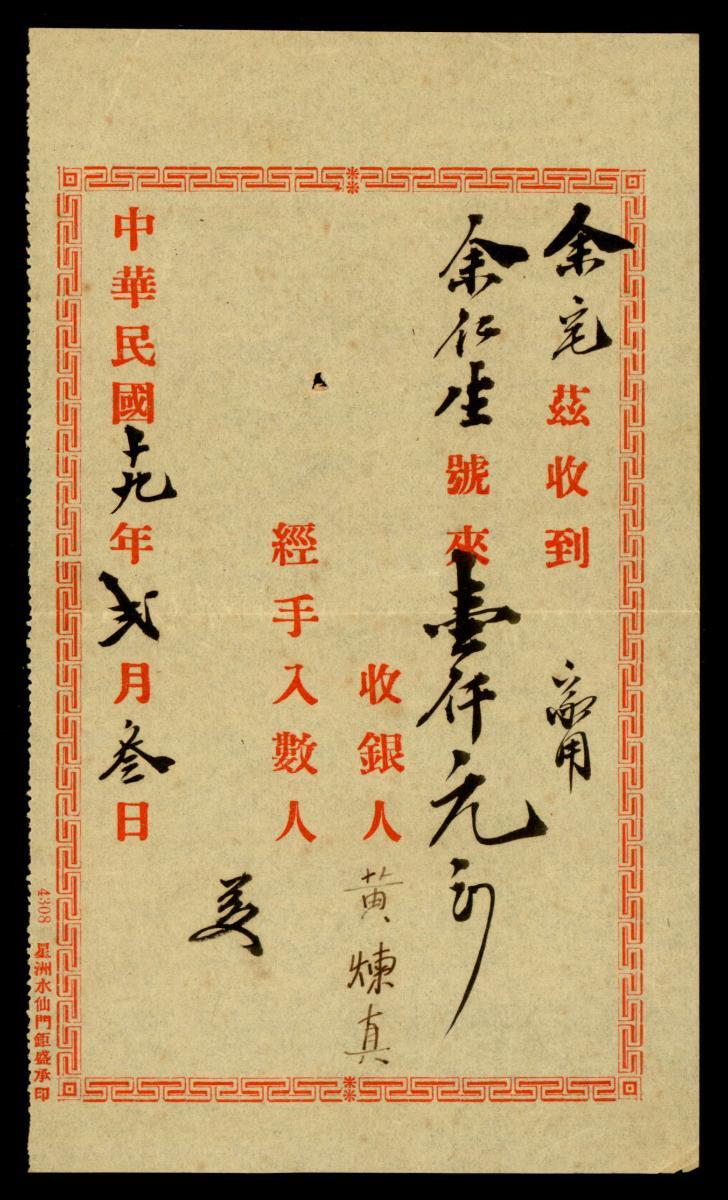 余宅茲收到
家用
余仁生號來壹仟元正
收銀人黃煉真
經手入數人
中華民國十九年弍月叁日
4308 星洲水仙門鉅盛承印